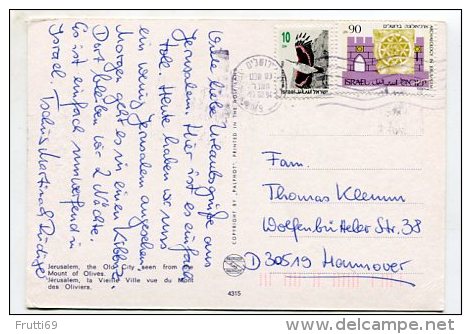 Viele liebe Urlaubsgrüße aus
Jerusalem. Hier ist es einfach
toll. Heute haben wir uns
ein wenig Jerusalem angesehen.
Morgen geht es in einen Kibbuz.
Dort bleiben wir 2 Nächte.
Es ist einfach umwerfend in
Israel. Tschüs Martina
10
90
ISRAEL
ISRAEL
Fam.
Thomas Klemm
Wolfenbütteler Str. 38
D 30519 Hannover
COPYRIGHT BY "PALPHOT" PRINTED IN THE HOLY LAND
Jerusalem, the Old City seen from
Mount of Olives.
Jérusalem, la Vieille Ville vue du Mont
des Oliviers.
4315
Frutti69
delcampe.net